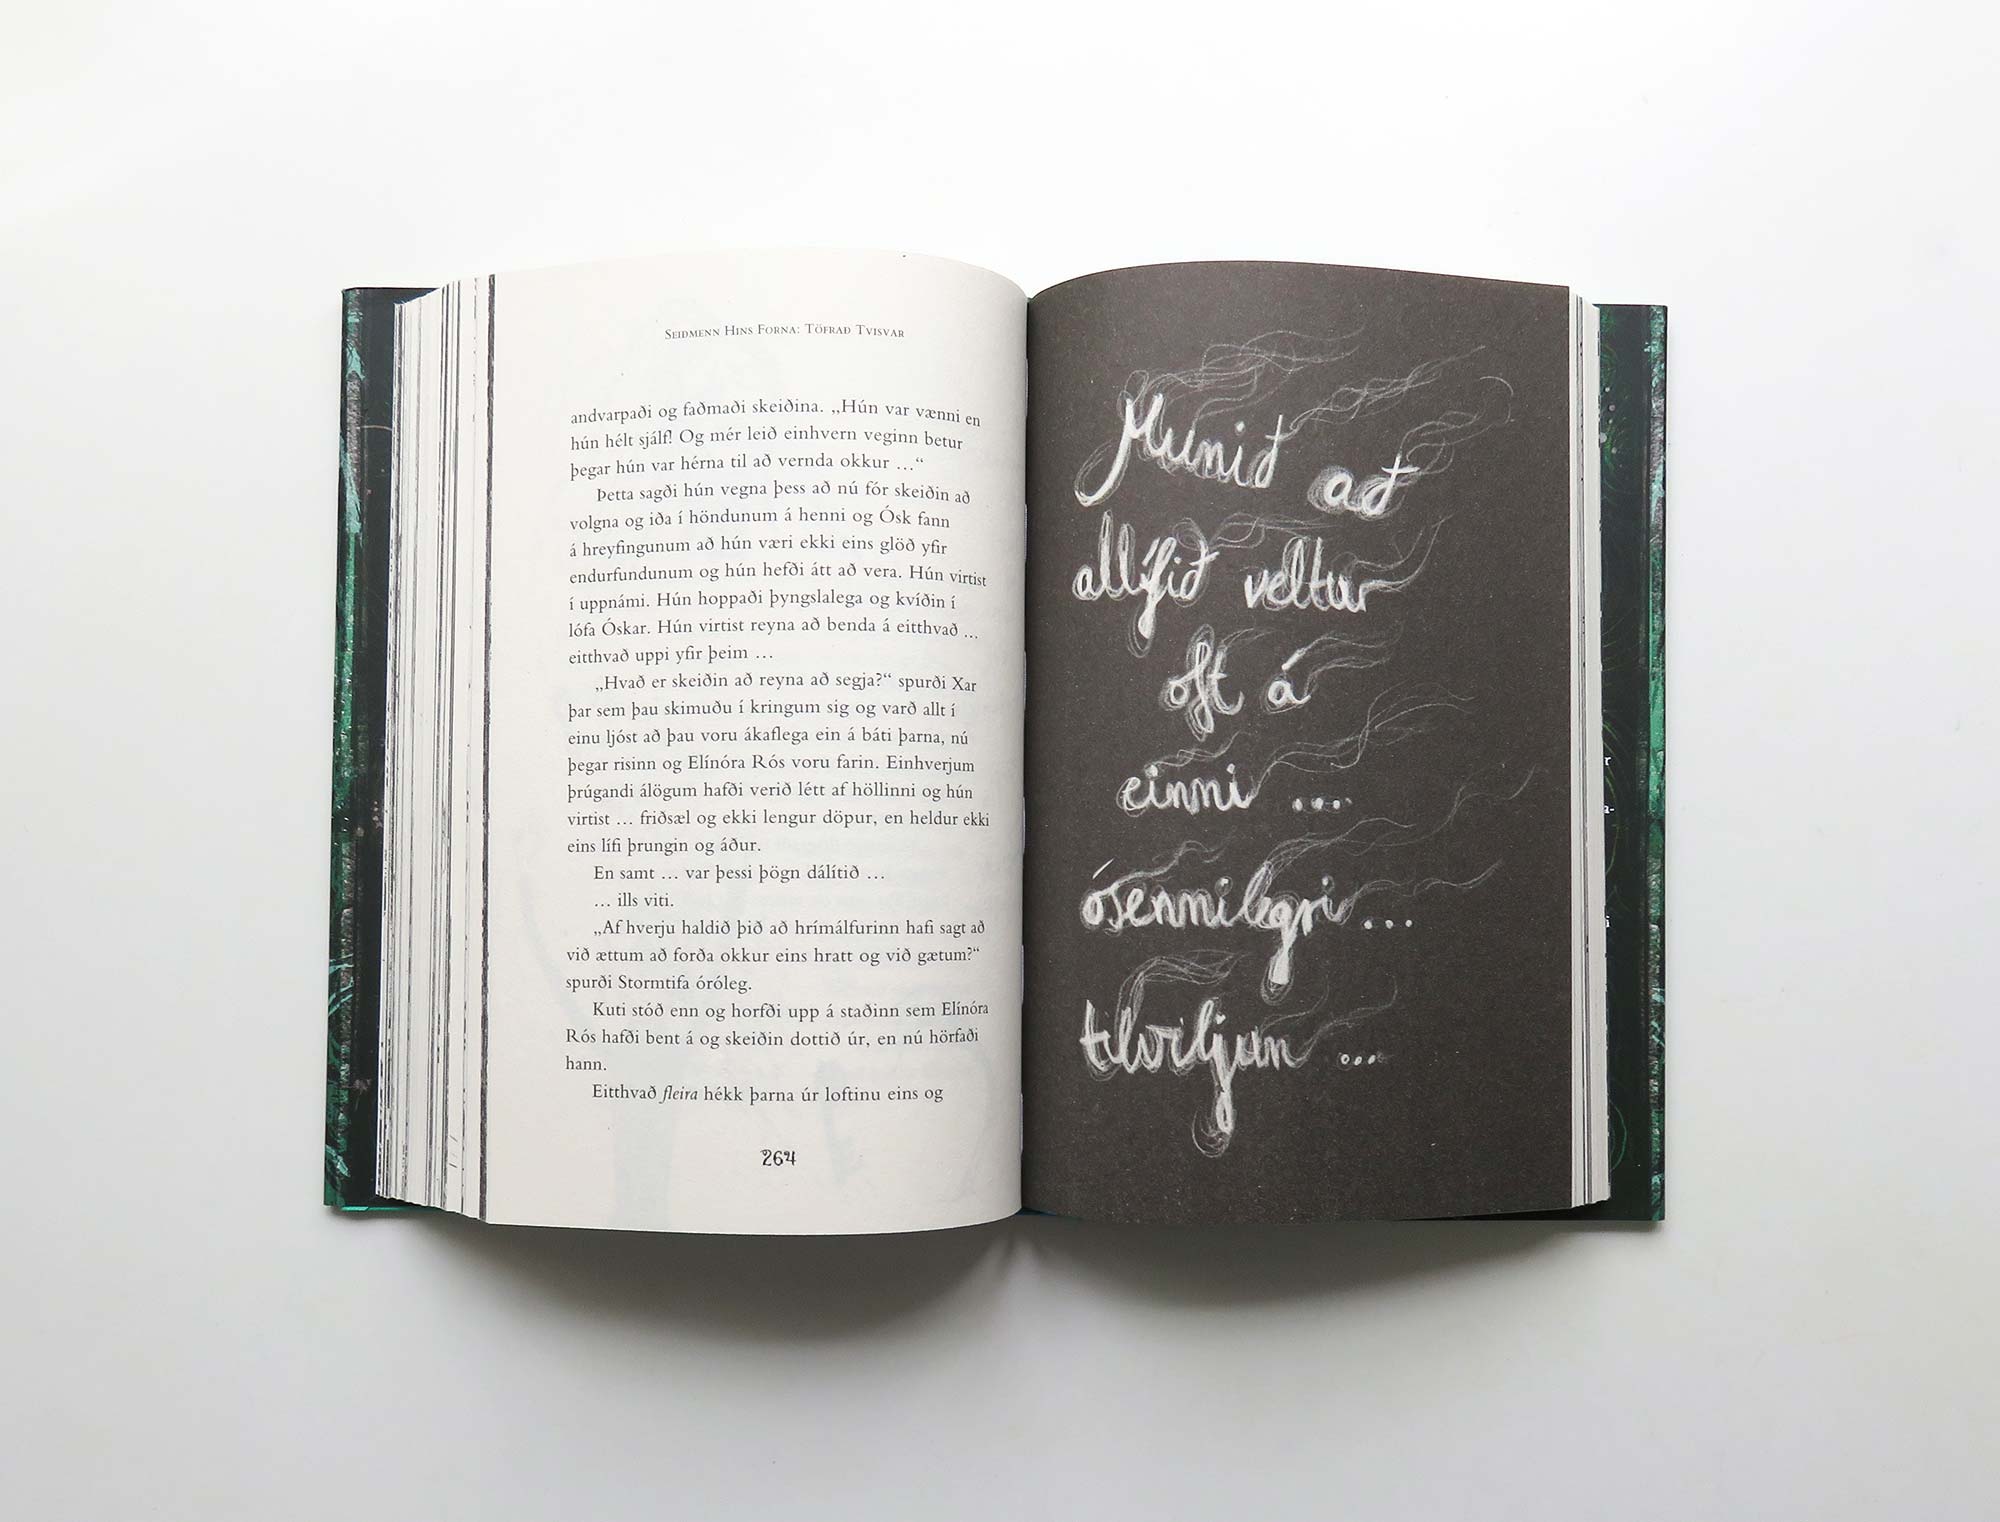 Seiðmenn Hins Forna: Töfrað Tvisvar
andvarpaði og faðmaði skeiðina. „Hún var vænni en
hún hélt sjálf! Og mér leið einhvern veginn betur
þegar hún var hérna til að vernda okkur …“
Þetta sagði hún vegna þess að nú fór skeiðin að
volgna og iða í höndunum á henni og Ósk fann
á hreyfingunum að hún væri ekki eins glöð yfir
endurfundunum og hún hefði átt að vera. Hún virtist
í uppnámi. Hún hoppaði þyngslalega og kvíðin í
lófa Óskar. Hún virtist reyna að benda á eitthvað …
eitthvað uppi yfir þeim …
„Hvað er skeiðin að reyna að segja?“ spurði Xar
þar sem þau skimuðu í kringum sig og varð allt í
einu ljóst að þau voru ákaflega ein á báti þarna, nú
þegar risinn og Elínóra Rós voru farin. Einhverjum
þrúgandi álögum hafði verið létt af höllinni og hún
virtist … friðsæl og ekki lengur döpur, en heldur ekki
eins lífi þrungin og áður.
En samt … var þessi þögn dálítið …
… ills viti.
„Af hverju haldið þið að hrímálfurinn hafi sagt að
við ættum að forða okkur eins hratt og við gætum?“
spurði Stormtifa óróleg.
Kuti stóð enn og horfði upp á staðinn sem Elínóra
Rós hafði bent á og skeiðin dottið úr, en nú hörfaði
hann.
Eitthvað fleira hékk þarna úr loftinu eins og
264
Munið að
allífið veltur
oft á
einni …
ósennilegri …
tilviljun …